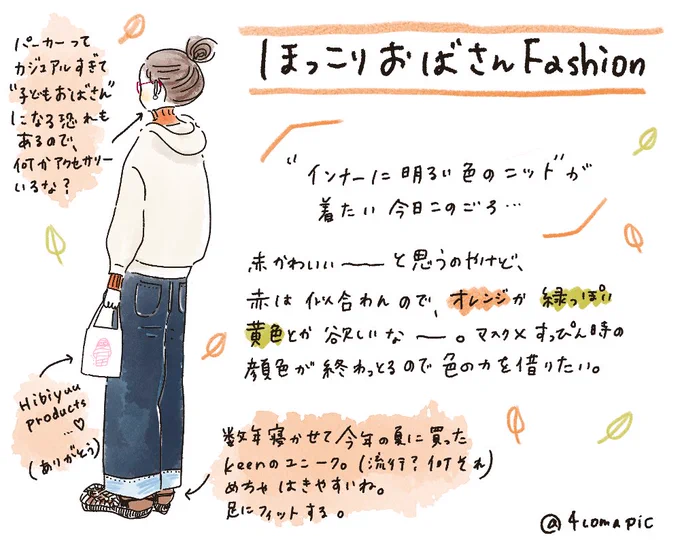 ほっこりおばさんFashion
パーカーって
カジュアルすぎて
"子どもおばさん"
になる恐れも
あるので、
何かアクセサリー
いるな?
"インナーに明るい色のニット"が
着たい今日このごろ…
赤かわいい〜と思うのやけど、
赤は似合わんので、オレンジか緑っぽい
黄色とか欲しいな〜。マスク×すっぴん時の
顔色が終わっとるので色の力を借りたい。
Hibiyuu
products
…♡
(ありがとう)
数年寝かせて今年の夏に買った
keenのユニーク。(流行?何それ)
めちゃはきやすいね。
足にフィットする。
@4comapic